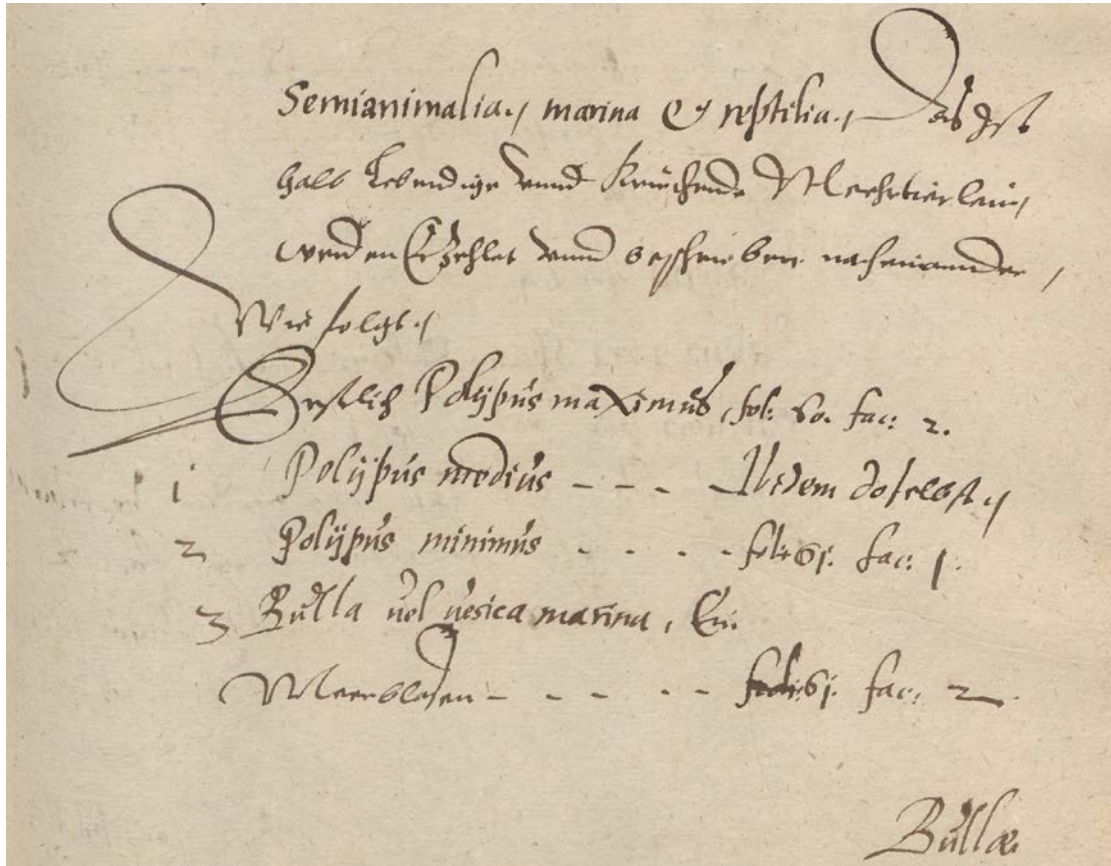 Semianimalia, marina & reptilia, Das Ist
halb Lebendige vnnd Kriechende Meehrtierlein,
werden Erzehlet vnnd beschrieben nacheinander,
Wie folgt,
Erstlich Polÿpus maximus, fol: 60. fac: 2.
1 Polÿpus medius - - - - Jbidem doselbst,
2 Polÿpus minimus - - - - fol: 61. fac: 1.
3 Bulla vel vesica marina, Ein
Meerblasen - - - - - fol: 61. fac: 2.
Bullæ